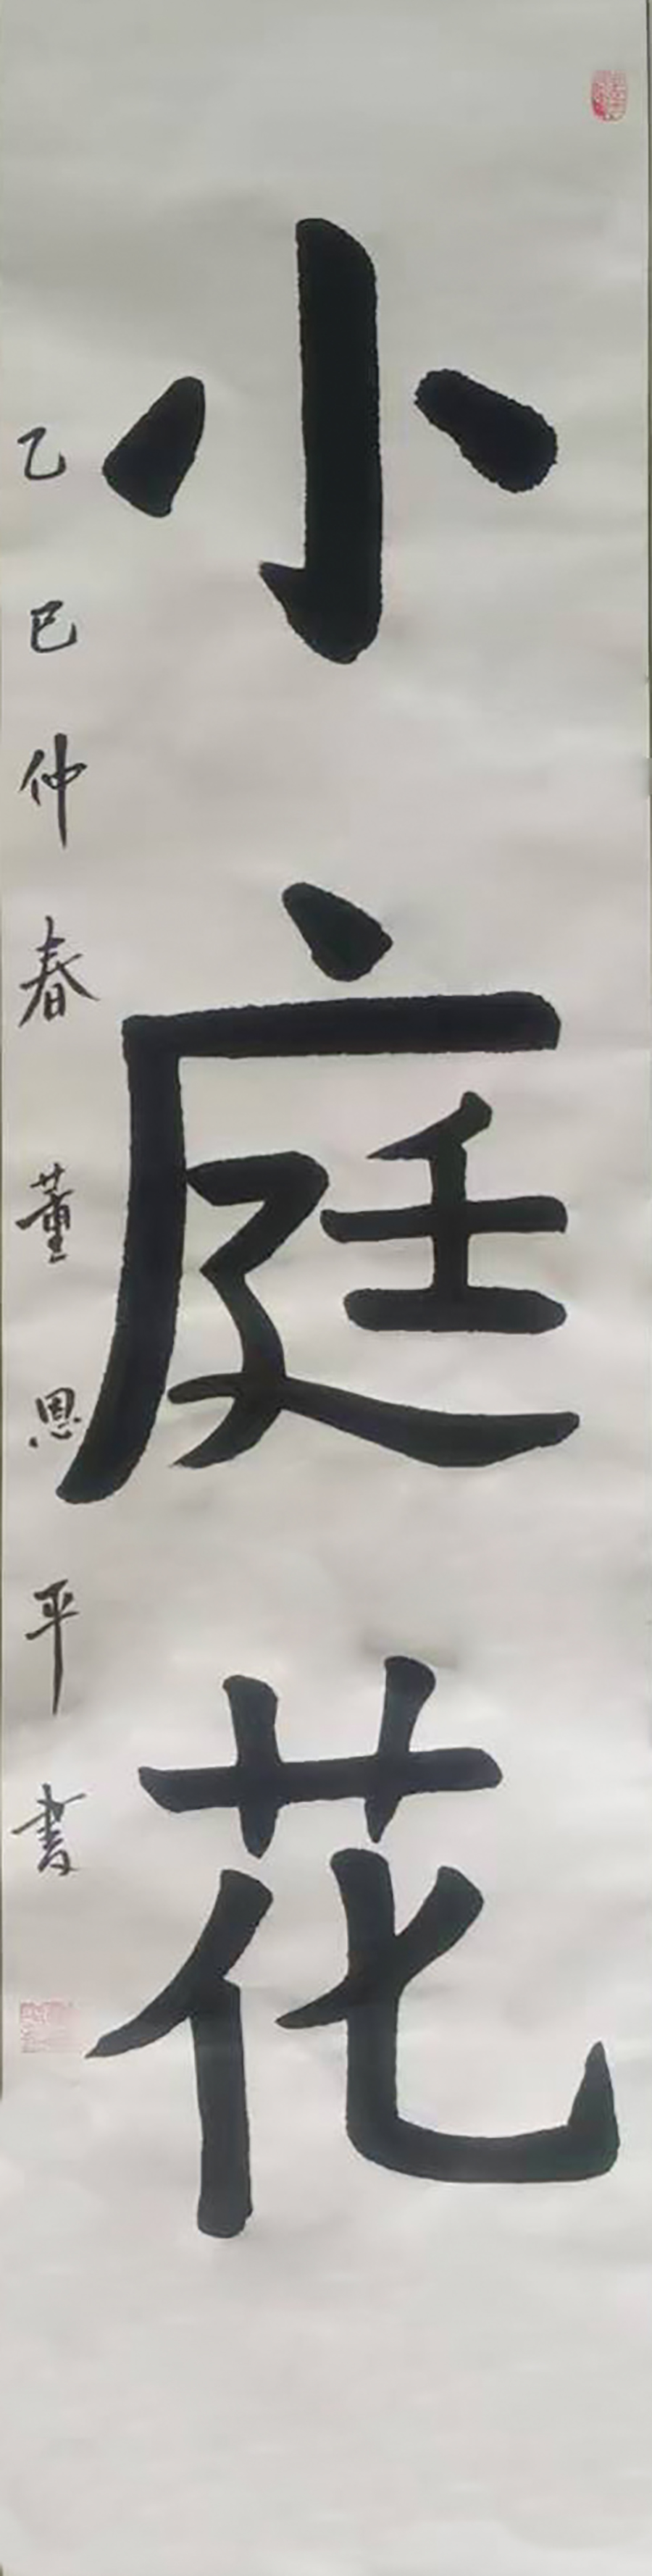 小庭花
乙巳仲春董恩平书